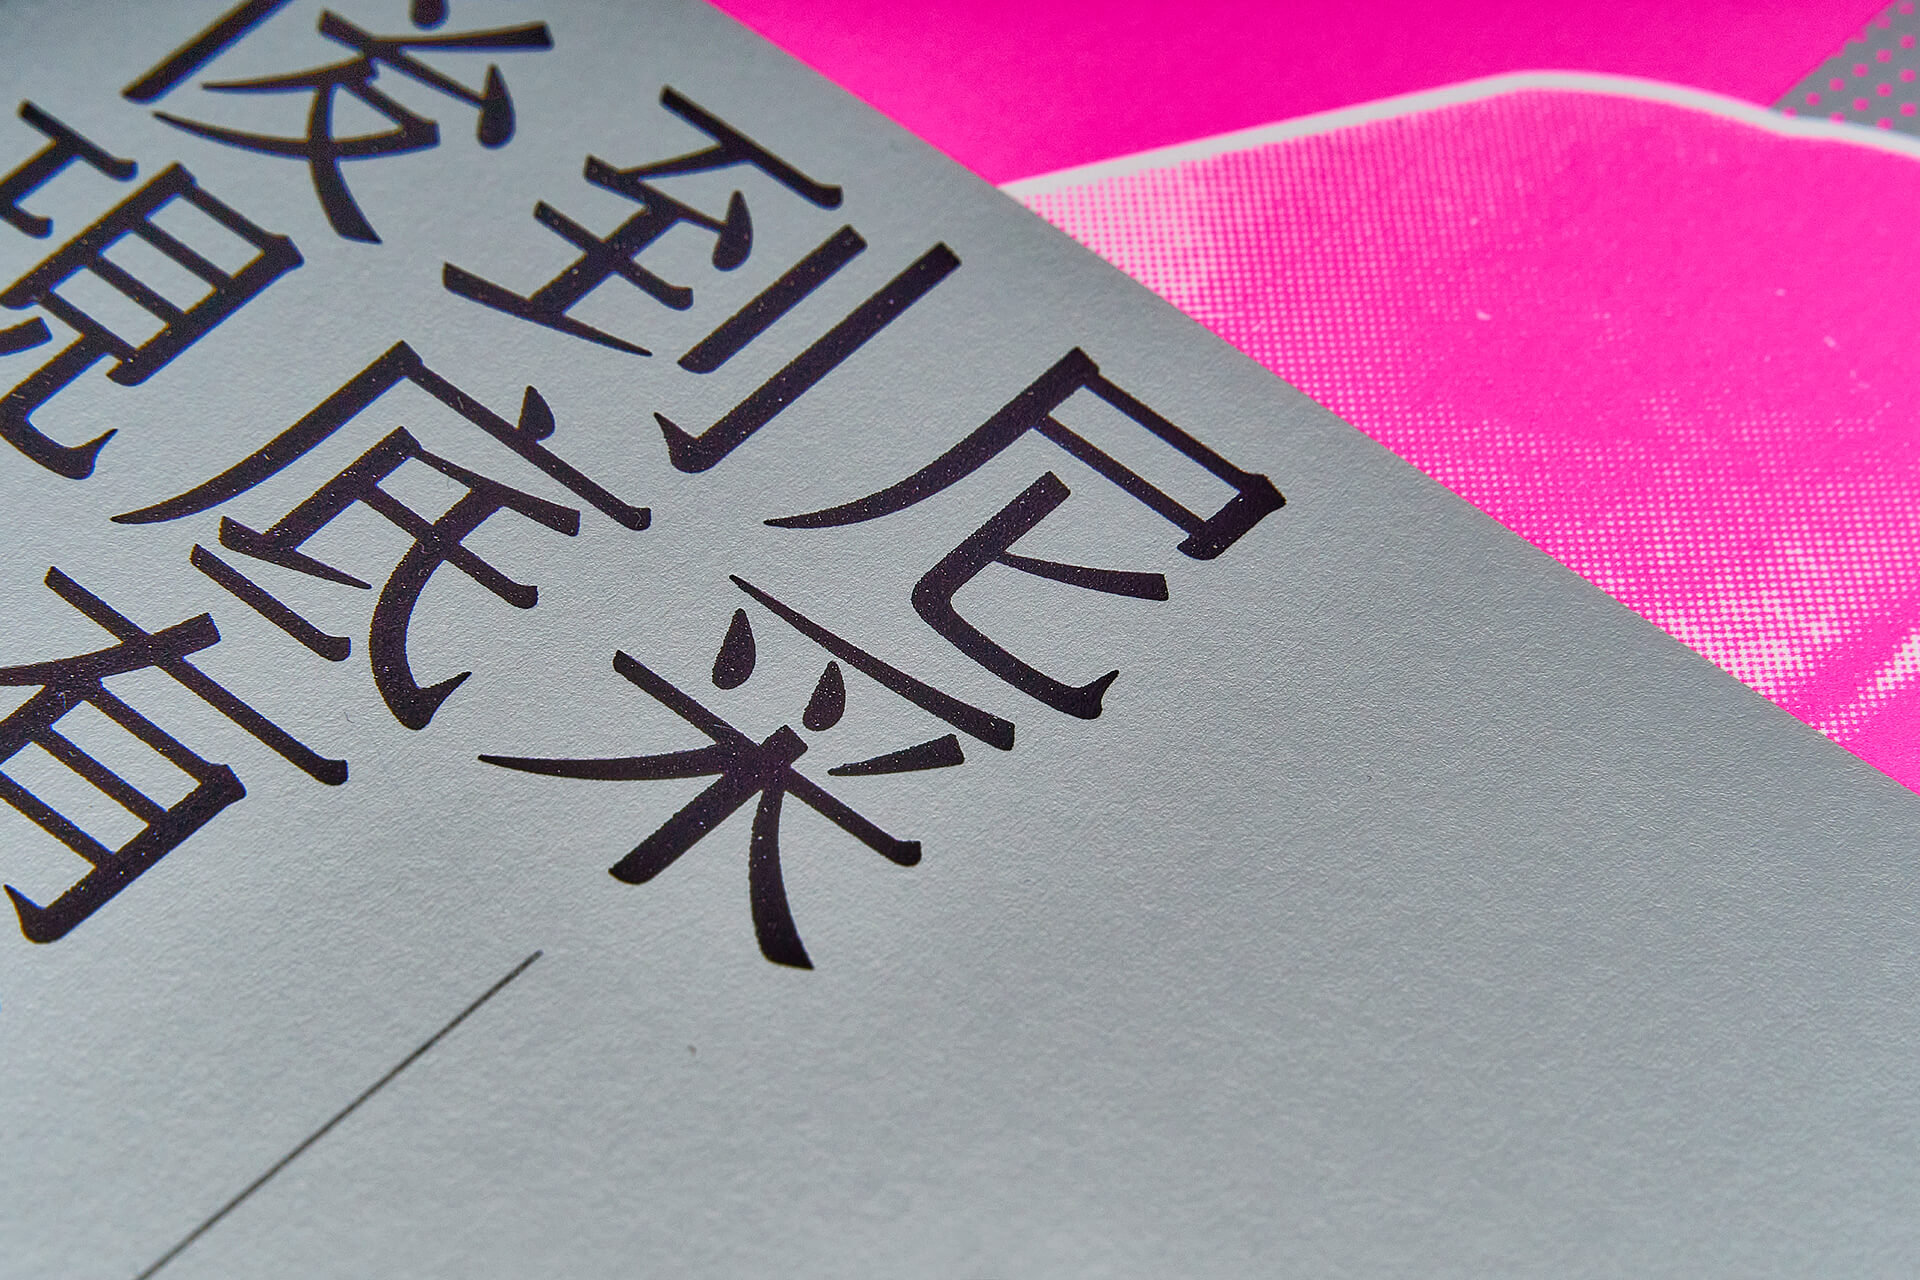 尼采
到底有
後現